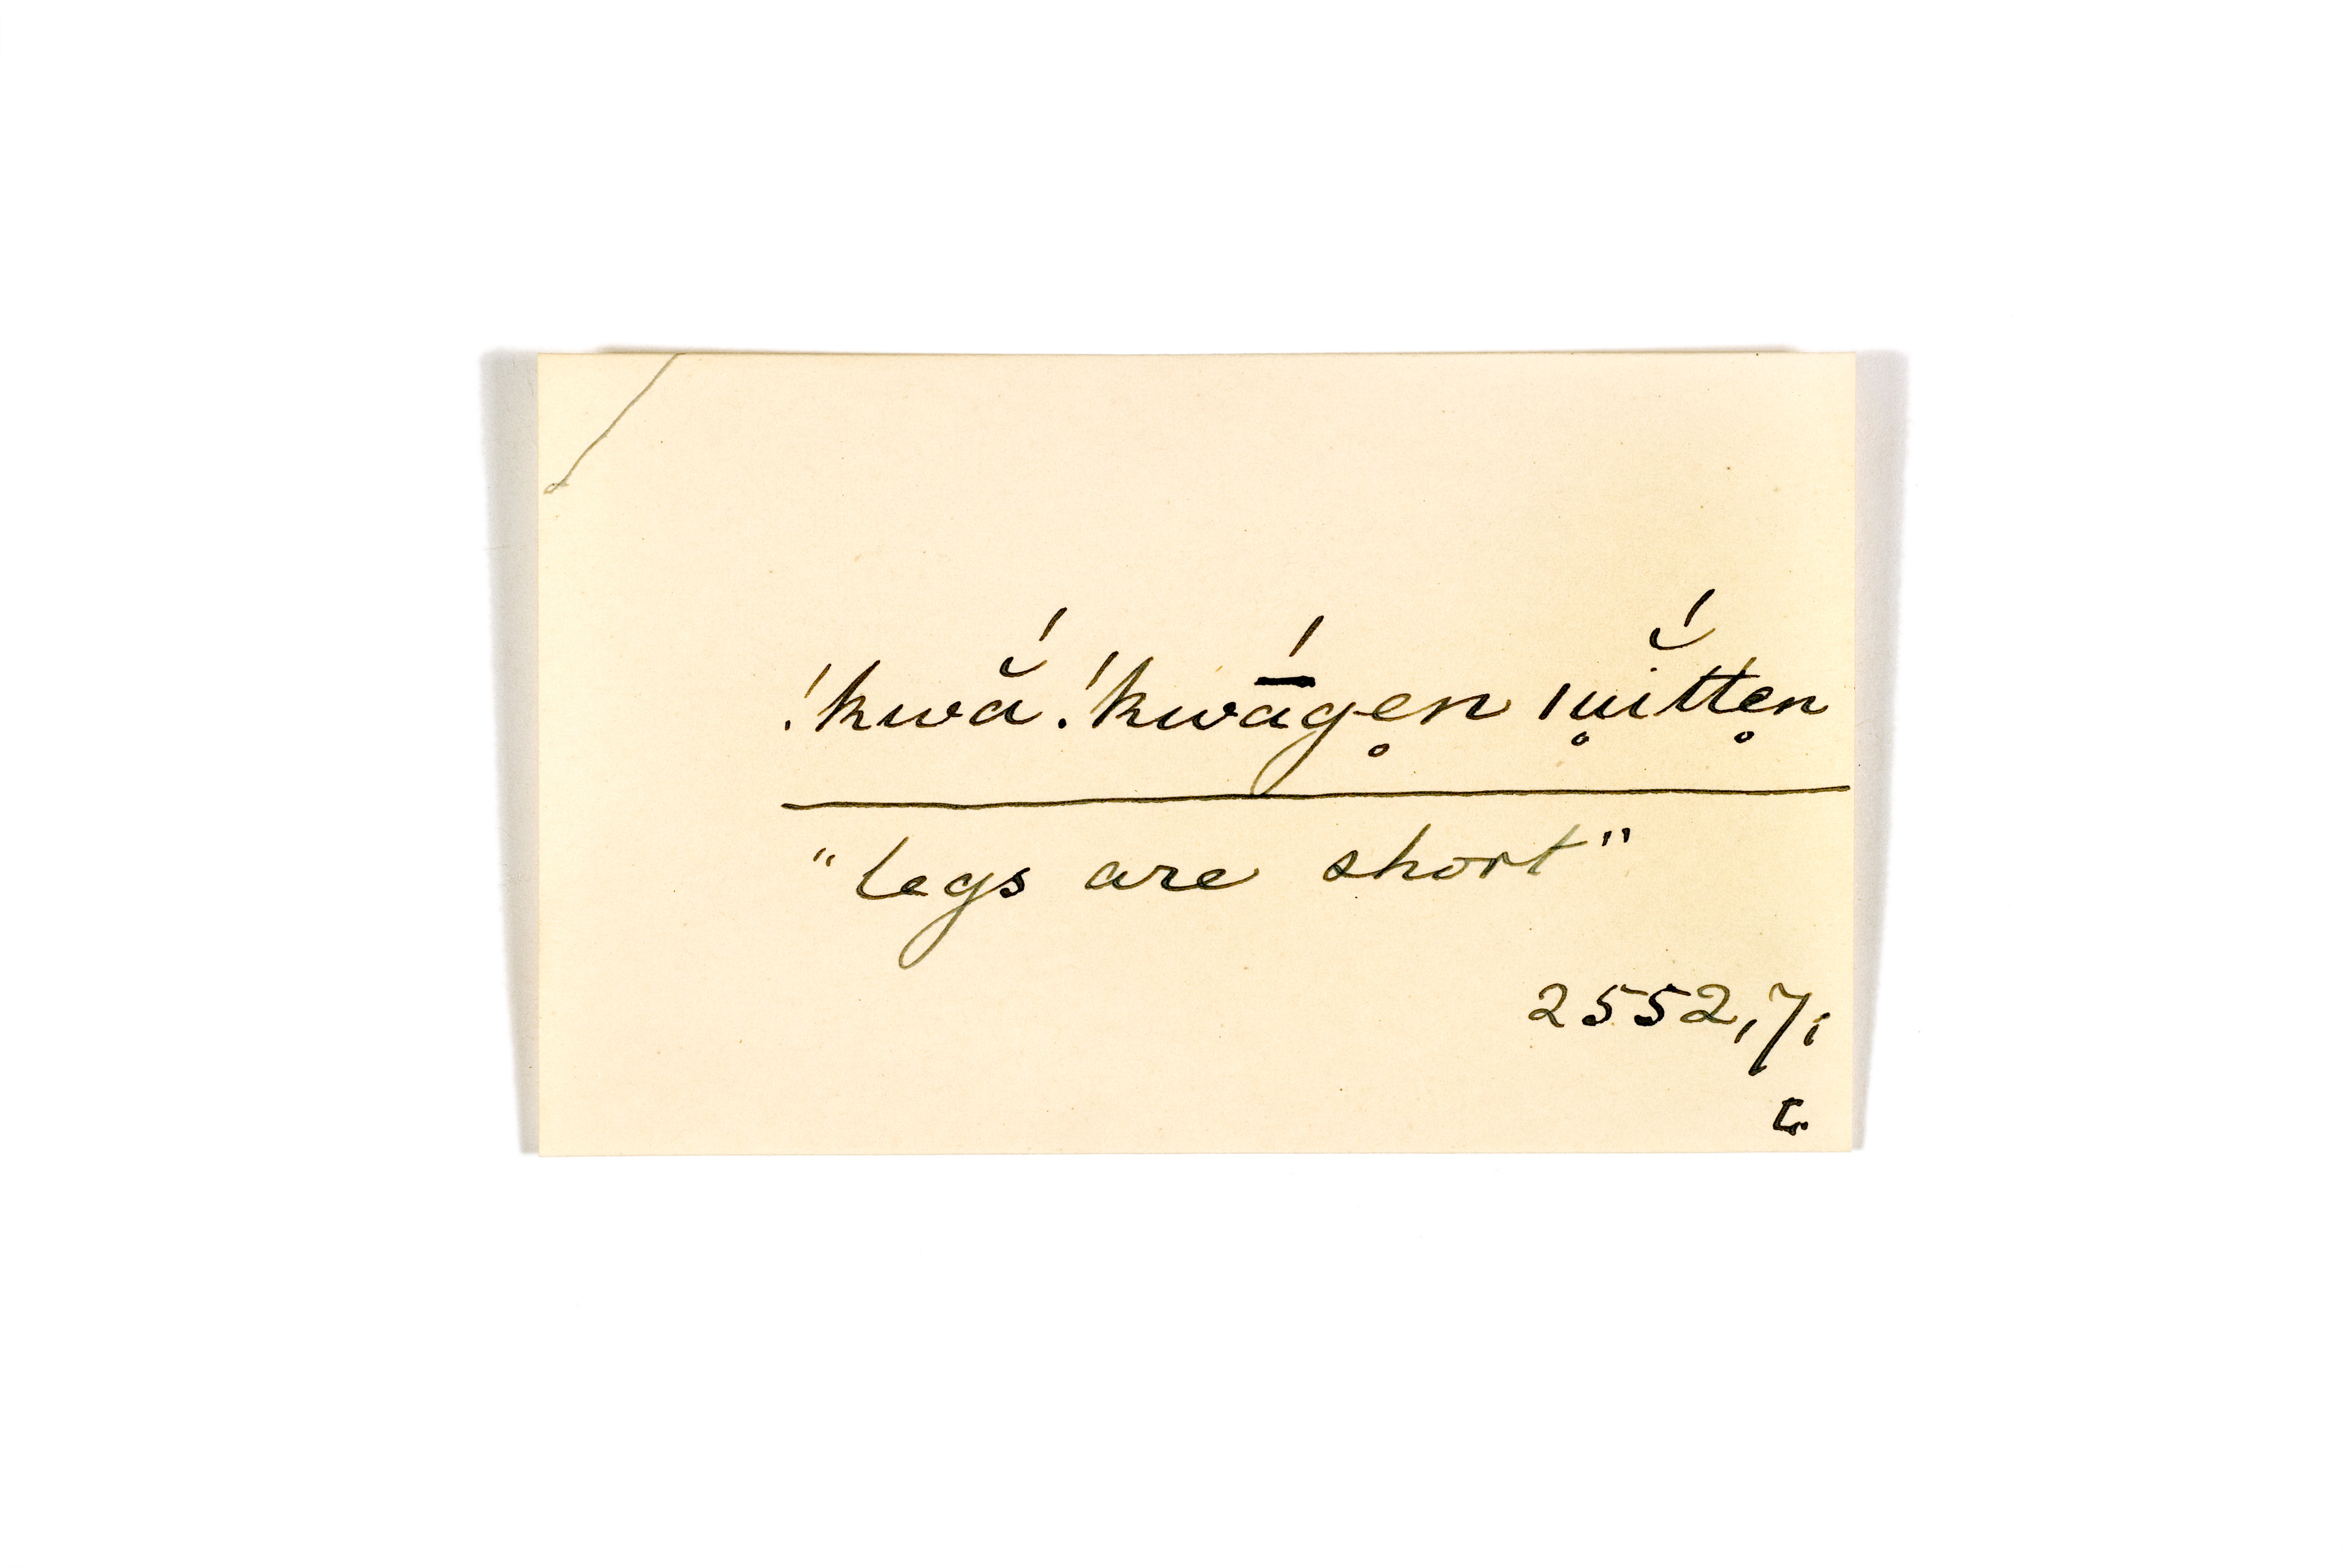 !kwắ!kwā́ge̥n ǀu̥ĭ́tte̥n
"legs are short"
2552,7,
L.